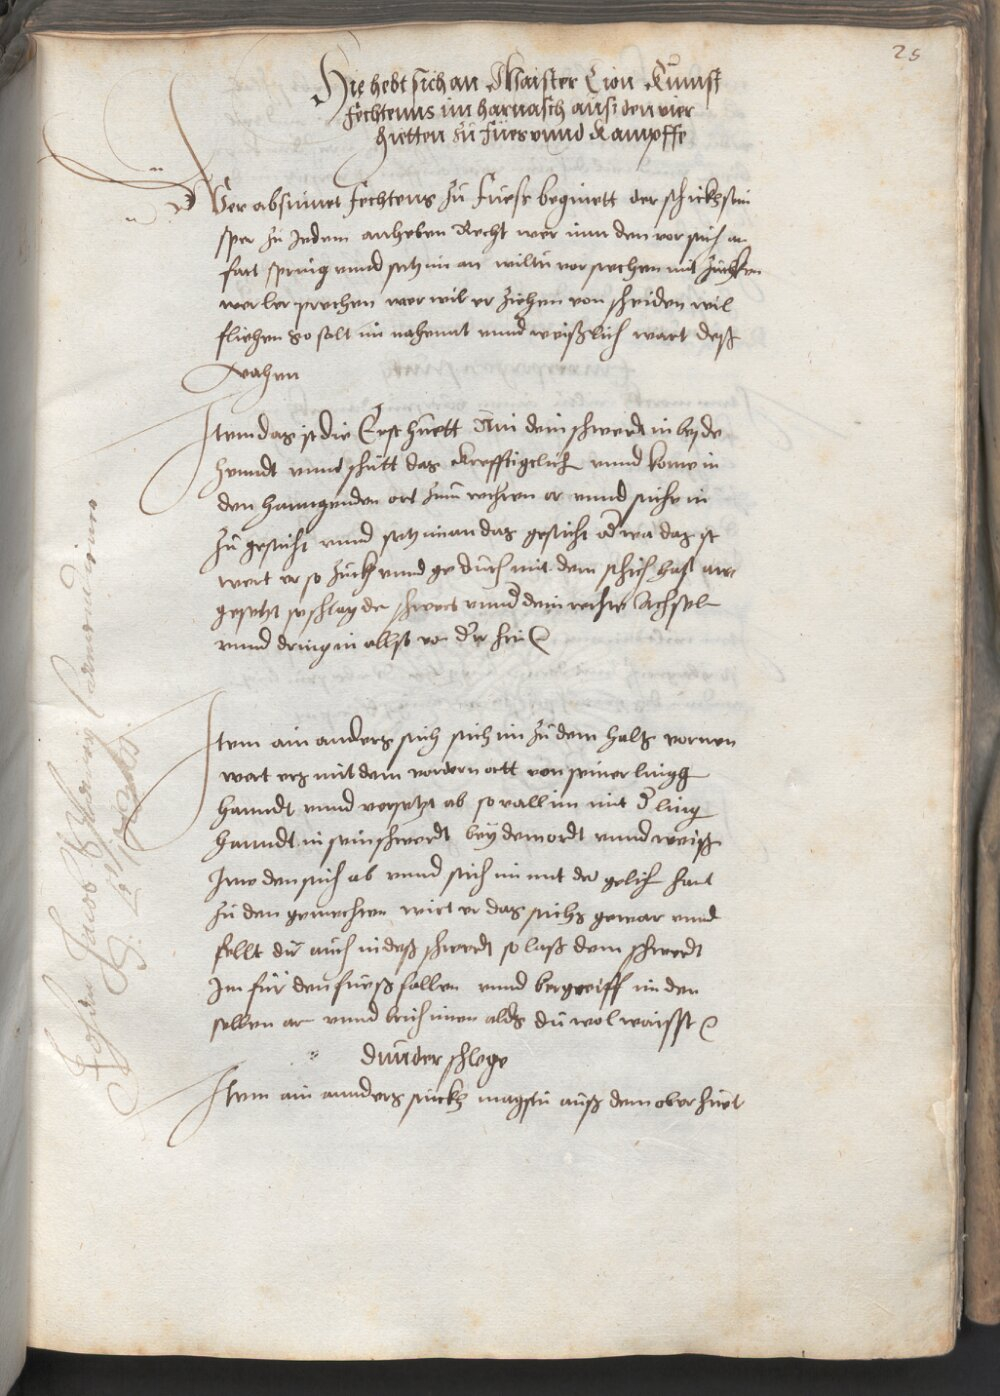 25
Hie hebt sich an Maister Lion Kunst
fechtenns im harnasch auss den vier
huetten zu Fues vnnd Kampffe
Wer absinnet fechtens zu fuess beginnett der schickh sein
sper zu Jedem anheben Recht wer nun den vor stich an
fart spring vnnd setz im an wiltu vorstechen mit zuckhen
wer ler prechen wer wil er ziehen von scheiden wil
fliehen so solt im nahennt vnnd weißlich wart deß
vahen
Item das ist die Erst huett Nim dein schwerdt in beyde
henndt vnnd schutt das krefftigclich vnnd kome in
den hanngenden ort zum rechten or vnnd stiche im
zu gesicht vnnd setz im an das gesicht oder wa das ist
wert er so zuckh vnnd ge durch mit dem stich hast an
gesetzt so schlag de schwert vnnd dein rechte Achsel
vnnd dring in allso von dir hin
Item ain anders stich stich im zu dem hals vornen
wert ers mit dem vordern ortt von seiner lingg
hanndt vnnd versetzt ab so vall im mit der ling
hanndt in sein schwerdt bey dem ordt vnnd weiß
Ime den stich ab vnnd stich im mit der gelich hant
zu den gemechten wirt er das stichs gewar vnnd
fellt dir auch in deß schwerdt so laß dein schwerdt
Im fur den fueß fallen vnnd begreiff im den
selben arm vnnd brich imen alls du wol waisst
Dunder schlege
Item ain annders stuckh magstu auß dem ober huet